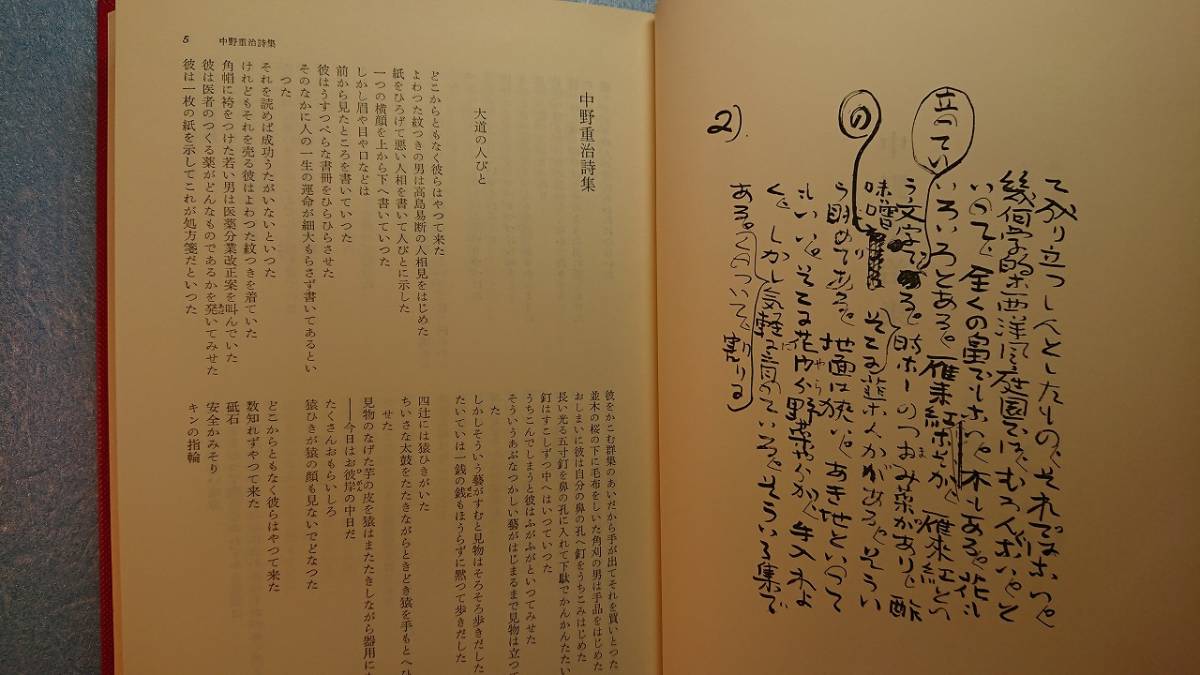 て成り立つしんとしたもの、それではない。
幾何学的な西洋風庭園ではむろんない。と
いつて、全くの畠でもない。木もある。花も
いろいろとある。雁来紅なぞが、雁来紅とい
立つてい
う文字で
る。時なしのつまみ菜があり、酢
の
味噌
韮なんかがある。そうい
う眺めである。地面は狭い。あき地といつて
もいい。そこに花やら野菜やらが、手入れよ
く、しかし気軽に育つている。そういう集で
ある。
2)
5 中野重治詩集
中野重治詩集
大道の人びと
どこからともなく彼らはやつて来た
よわつた紋つきの男は高島易断の人相見をはじめた
紙をひろげて悪い人相を書いて人びとに示した
一つの横顔を上から下へ書いていつた
しかし眉や目や口などは
前から見たところを書いていつた
彼はうすつぺらな書冊をひらひらさせた
そのなかに人の一生の運命が細大もらさず書いてあるとい
つた
それを読めば成功うたがいないといつた
けれどもそれを売る彼はよわつた紋つきを着ていた
角帽に袴をつけた若い男は医薬分業改正案を叫んでいた
彼は医者のつくる薬がどんなものであるかを発いてみせた
彼は一枚の紙を示してこれが処方箋だといつた
彼をかこむ群集のあいだから手が出てそれを買いとつた
並木の桜の下に毛布をしいた角刈の男は手品をはじめた
おしまいに彼は自分の鼻の孔へ釘をうちこみはじめた
長い光る五寸釘を鼻の孔に入れて下駄でかんかんたたい
釘はすこしずつ中へはいつていつた
うちこんでしまうと彼はふがふがといつてみせた
そういうあぶなつかしい藝がはじまるまで見物は立つて
た
しかしそういう藝がすむと見物はそろそろ歩きだした
たいていは一銭の銭もほうらずに黙つて歩きだした
四辻には猿ひきがいた
ちいさな太鼓をたたきながらときどき猿を手もとへひ
せた
見物のなげた芋の皮を猿はまたたきしながら器用に
――今日はお彼岸の中日だ
たくさんおもらいしろ
猿ひきが猿の顔も見ないでどなつた
どこからともなく彼らはやつて来た
数知れずやつて来た
砥石
安全かみそり
キンの指輪